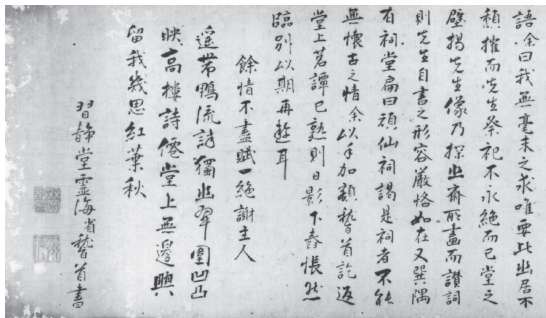 語余曰我無毫末之求唯要此幽居不
頹摧而先生祭祀不永絶而已堂之
壁揭先生像乃探幽齋所畫而讚詞
則先生自書之形容嚴恪如在又巽隅
有祠堂扁曰頑仙祠謁是祠者不能
無懷古之情余以手加額稽首訖返
堂上茗譚已熟則日影下舂悵然
臨別以期再遊耳
餘情不盡賦一絶謝主人
遥帶鴨流獨幽翠圍凹凸
映高樓詩僊堂上無邊興
留我幾思紅葉秋
習静堂霊海省稽首書